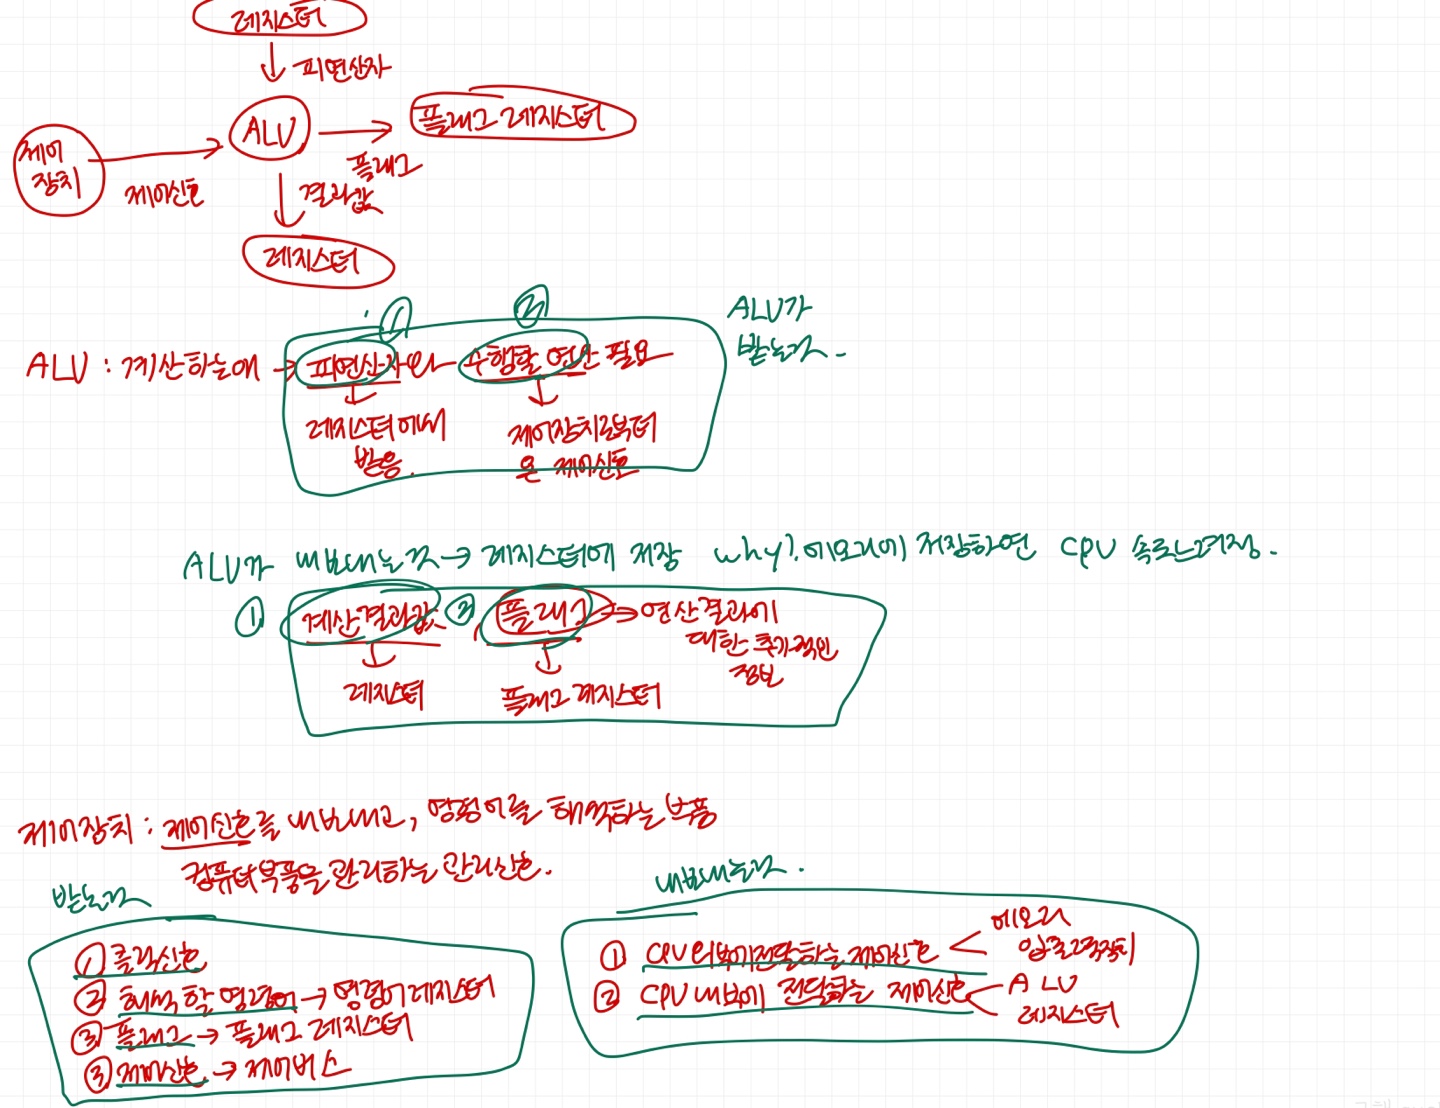 레지스터
↓ 피연산자
ALU → 플래그 레지스터
플래그
제어
장치
→
제어신호
↓ 결과값
레지스터
① ②
ALU가
받는것.
ALU : 계산하는애 → 피연산자와 수행할 연산 필요
레지스터에서
받음.
제어장치로부터
온 제어신호
ALU가 내보내는것 → 레지스터에 저장 why?. 메모리에 저장하면 CPU 속도느려짐.
① 계산결과값 ② 플래그 → 연산결과에
대한 추가적인
정보
레지스터
플래그 레지스터
제어장치 : 제어신호를 내보내고, 명령어를 해석하는 부품
컴퓨터부품을 관리하는 관리신호.
받는것
① 클럭신호
② 해석할 명령어 → 명령어 레지스터
③ 플래그 → 플래그 레지스터
③ 제어신호 → 제어버스
내보내는것.
① CPU 외부에 전달하는 제어신호 < 메모리
입출력장치
② CPU 내부에 전달하는 제어신호 < ALU
레지스터